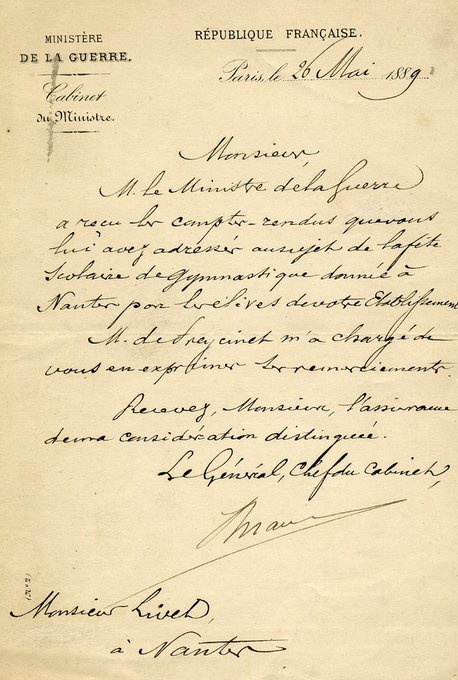 MINISTÈRE
DE LA GUERRE.
Cabinet
du Ministre.
RÉPUBLIQUE FRANÇAISE.
Paris, le 26 Mai 1889.
Monsieur,
M. le Ministre de la Guerre
a reçu les comptes-rendus que vous
lui avez adressés au sujet de la fête
Scolaire de Gymnastique donnée à
Nantes par les élèves de votre Etablissement
M. de Freycinet m'a chargé de
vous en exprimer ses remerciements.
Recevez, Monsieur, l'assurance
de ma considération distinguée.
Le Général, Chef du Cabinet,
(N° 2)
Monsieur Livet,
à Nantes